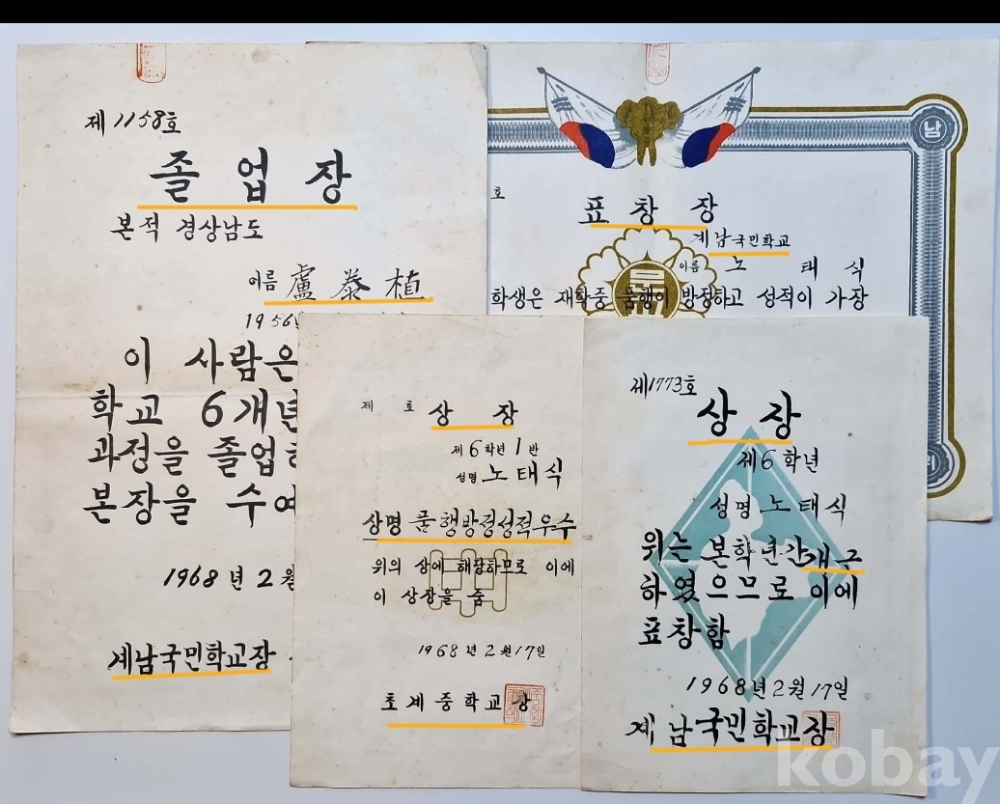 제1158호
졸업장
본적 경상남도
이름 盧泰植
1956
이 사람은
학교 6개년
과정을 졸업하
본장을 수여
1968년 2월
계남국민학교장
남
호
표창장
계남국민학교
이름 노태식
학생은 재학중 품행이 방정하고 성적이 가장
제 호
상장
제6학년 1반
성명 노태식
상명 품행방정성적우수
위의 상에 해당하므로 이에
이 상장을 줌
1968년 2월 17일
초계중학교장
제1773호
상장
제6학년
성명 노태식
위는 본학년간개근
하였으므로 이에
표창함
1968년 2월 17일
계남국민학교장
kobay